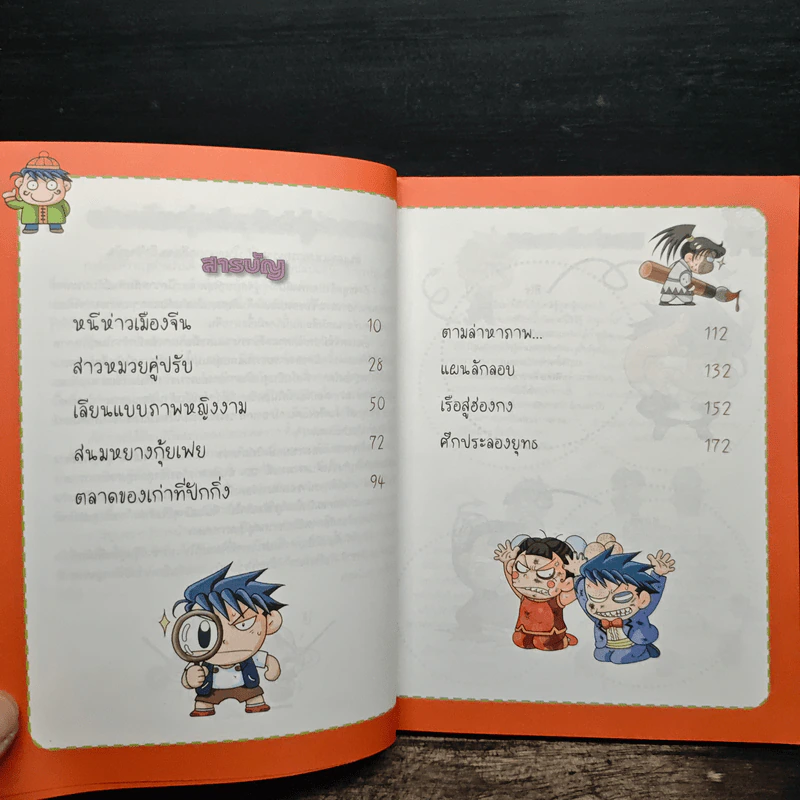 สารบัญ
หนีห่าวเมืองจีน 10
สาวหมวยคู่ปรับ 28
เลียนแบบภาพหญิงงาม 50
สนมหยางกุ้ยเฟย 72
ตลาดของเก่าที่ปักกิ่ง 94
ตามล่าหาภาพ... 112
แผนลักลอบ 132
เรือสู่ฮ่องกง 152
ศึกประลองยุทธ 172